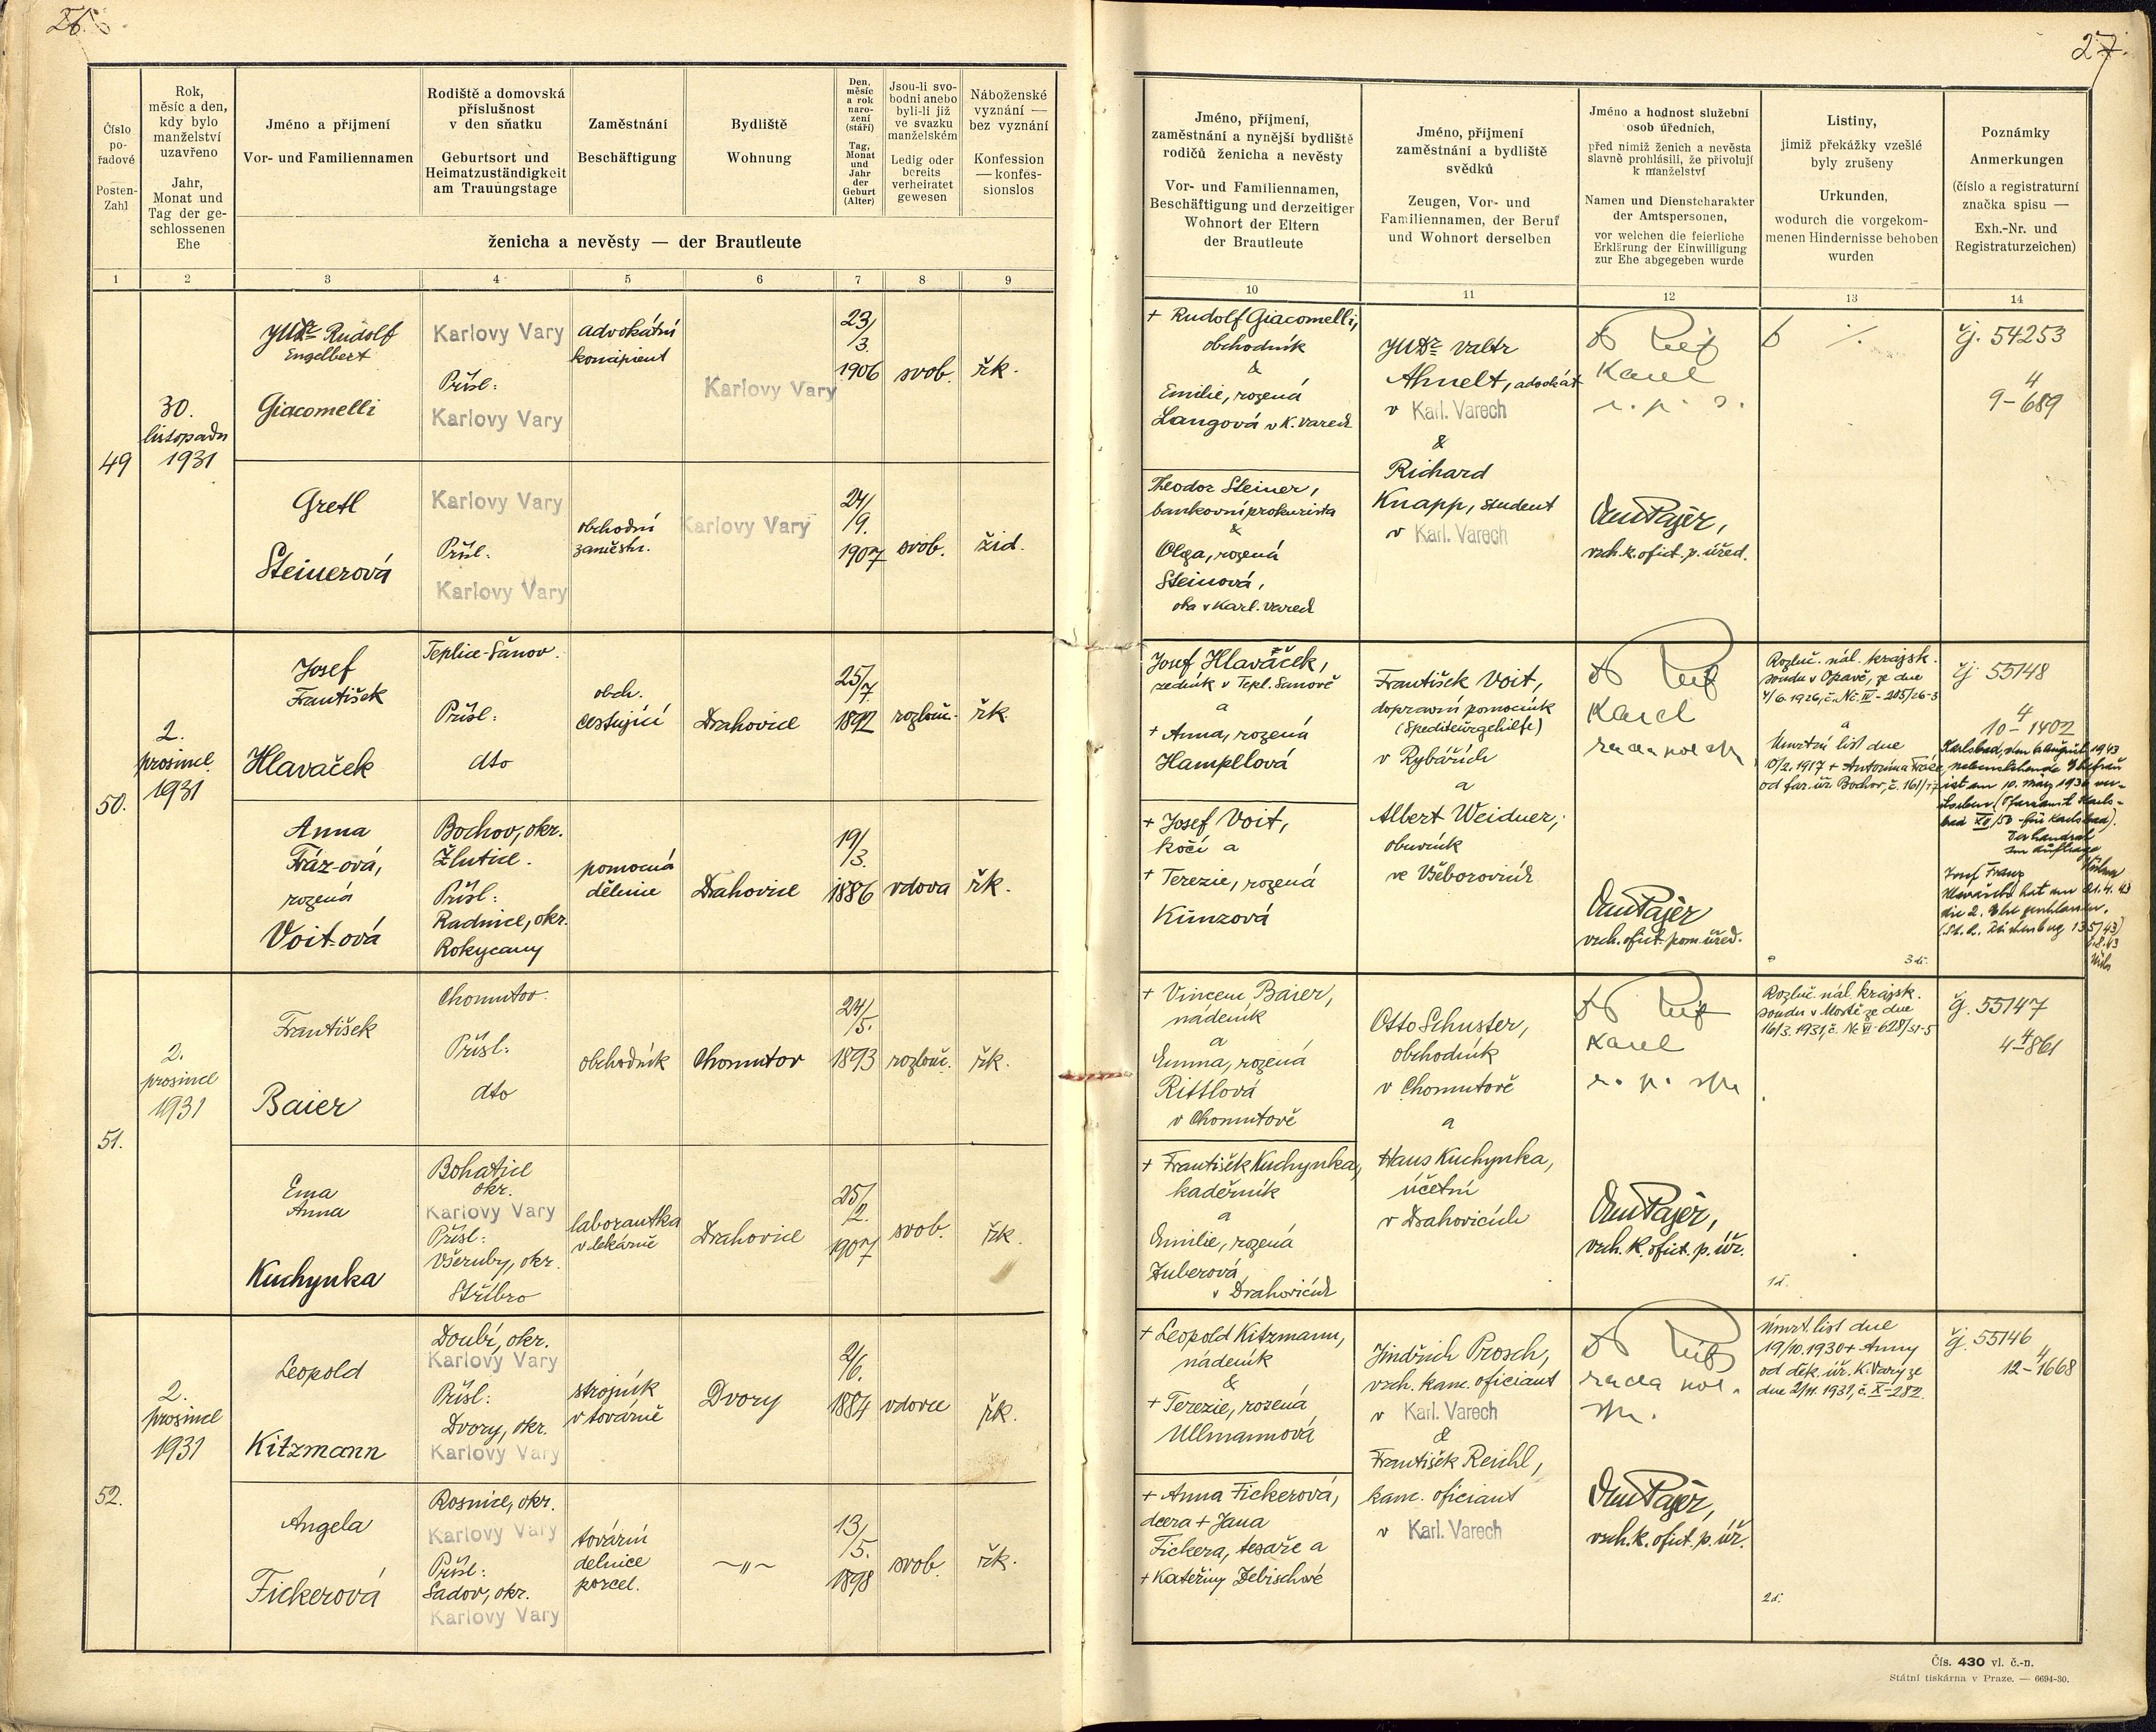 26.
27.
Číslo po-řadové
Posten-Zahl
Rok, měsíc a den, kdy bylo manželství uzavřeno
Jahr, Monat und Tag der ge-schlossenen Ehe
Jméno a přijmení
Vor- und Familiennamen
Rodiště a domovská příslušnost v den sňatku
Geburtsort und Heimatzuständigkeit am Trauungstage
Zaměstnání
Beschäftigung
Bydliště
Wohnung
Den, měsíc a rok naro-zení (stáří)
Tag, Monat und Jahr der Geburt (Alter)
Jsou-li svo-bodni anebo byli-li již ve svazku manželském
Ledig oder bereits verheiratet gewesen
Náboženské vyznání — bez vyznání
Konfession — konfes-sionslos
ženicha a nevěsty — der Brautleute
Jméno, příjmení, zaměstnání a nynější bydliště rodičů ženicha a nevěsty
Vor- und Familiennamen, Beschäftigung und derzeitiger Wohnort der Eltern der Brautleute
Jméno, příjmení zaměstnání a bydliště svědků
Zeugen, Vor- und Familiennamen, der Beruf und Wohnort derselben
Jméno a hodnost služební osob úředních,
před nimiž ženich a nevěsta slavně prohlásili, že přivolují k manželství
Namen und Dienstcharakter der Amtspersonen,
vor welchen die feierliche Erklärung der Einwilligung zur Ehe abgegeben wurde
Listiny,
jimiž překážky vzešlé byly zrušeny
Urkunden,
wodurch die vorgekom-menen Hindernisse behoben wurden
Poznámky
Anmerkungen
(číslo a registraturní značka spisu —
Exh.-Nr. und Registraturzeichen)
1 2 3 4 5 6 7 8 9
10 11 12 13 14
49
30.
listopadu
1931
JUDr Rudolf
Engelbert
Giacomelli
Karlovy Vary
Přísl:
Karlovy Vary
advokátní
koncipient
Karlovy Vary
23/3.
1906
svob.
řk.
Gretl
Steinerová
Karlovy Vary
Přísl:
Karlovy Vary
obchodní
zaměstn.
Karlovy Vary
24/9.
1907
svob.
žid.
+ Rudolf Giacomelli,
obchodník
&
Emilie, rozená
Langová v K. Varech
Theodor Steiner,
bankovní prokurista
&
Olga, rozená
Steinová,
oba v Karl. Varech
JUDr Valtr
Ahnelt, advokát
v Karl. Varech
&
Richard
Knapp, student
v Karl. Varech
Karel
Pajer,
vrch. k. ofict. p. úřed.
čj. 54253
4
9-689
50.
2.
prosince
1931
Josef
František
Hlavaček
Teplice-Šanov.
Přísl:
dto
obch.
cestující
Drahovice
25/7.
1892
rozlouč.
řk.
Anna
Fráz-ová,
rozená
Voit-ová
Bochov, okr.
Žlutice.
Přísl:
Radnice, okr.
Rokycany
pomocná
dělnice
Drahovice
19/3.
1886
vdova
řk.
Josef Hlaváček,
zedník v Tepl. Šanově
a
+ Anna, rozená
Hampllová
+ Josef Voit,
kočí a
+ Terezie, rozená
Künzová
František Voit,
dopravní pomocník
(Spediteurgehilfe)
v Rybářích
a
Albert Weidner,
obuvník
ve Všeborovicích
Karel
rada pol.
Pajer
vrch. ofict. pom. úřed.
Rozluč. nál. krajsk.
soudu v Opavě, ze dne
4/6. 1926, č. Nc IV - 205/26-3
a
Úmrtní list dne
10/2. 1917 + Antonína Fráze
od far. úř. Bochov, č. 161/17
3 d.
čj 55148
4
10-1402
Karlsbad, den 6. august 1943
nebenstehende Ehefrau
ist am 10. März 1936 ver-
storben (Pfarramt Karls-
bad XII/50 für Karlsbad).
Der Landrat
Im Auftrage
Josef Franz
Hlavaček hat am 21. 4. 43
die 2. Ehe geschlossen.
51.
2.
prosince
1931
František
Baier
Chomutov.
Přísl:
dto
obchodník
Chomutov
24/5.
1893
rozlouč.
řk.
Ema
Anna
Kuchynka
Bohatice
okr.
Karlovy Vary
Přísl:
Všeruby, okr.
Stříbro
laborantka
v lékárně
Drahovice
25/2.
1907
svob.
řk.
+ Vincenc Baier,
nádeník
a
Emma, rozená
Rittlová
v Chomutově
+ František Kuchynka,
kadeřník
a
Emilie, rozená
Huberová
v Drahovicích
Otto Schuster,
obchodník
v Chomutově
a
Hans Kuchynka,
účetní
v Drahovicích
Karel
Pajer,
vrch. k. ofict. p. úř.
Rozluč. nál. krajsk.
soudu v Mostě ze dne
16/3. 1931, č. Nc VI - 628/31-5
1 d.
čj. 55147
4
4-861
52.
2.
prosince
1931
Leopold
Kitzmann
Doubí, okr.
Karlovy Vary
Přísl:
Dvory, okr.
Karlovy Vary
strojník
v továrně
Dvory
2/6.
1884
vdovec
řk.
Angela
Fickerová
Rosnice, okr.
Karlovy Vary
Přísl:
Sadov, okr.
Karlovy Vary
tovární
dělnice
porcel.
~„~
13/5.
1898
svob.
řk.
+ Leopold Kitzmann,
nádeník
&
+ Terezie, rozená
Ullmannová
+ Anna Fickerová,
dcera + Jana
Fickera, tesaře a
+ Kateřiny Debischové
Jindřich Prosch,
vrch. kanc. oficiant
v Karl. Varech
&
František Reichl,
kanc. oficiant
v Karl. Varech
rada pol.
Pajer,
vrch. k. ofict. p. úř.
Úmrt. list dne
19/10. 1930 + Anny
od děk. úř. K. Vary ze
dne 2/11. 1931, č. X-282.
2 d.
čj. 55146
4
12-1668
Čís. 430 vl. č.-n.
Státní tiskárna v Praze. — 6694-30.